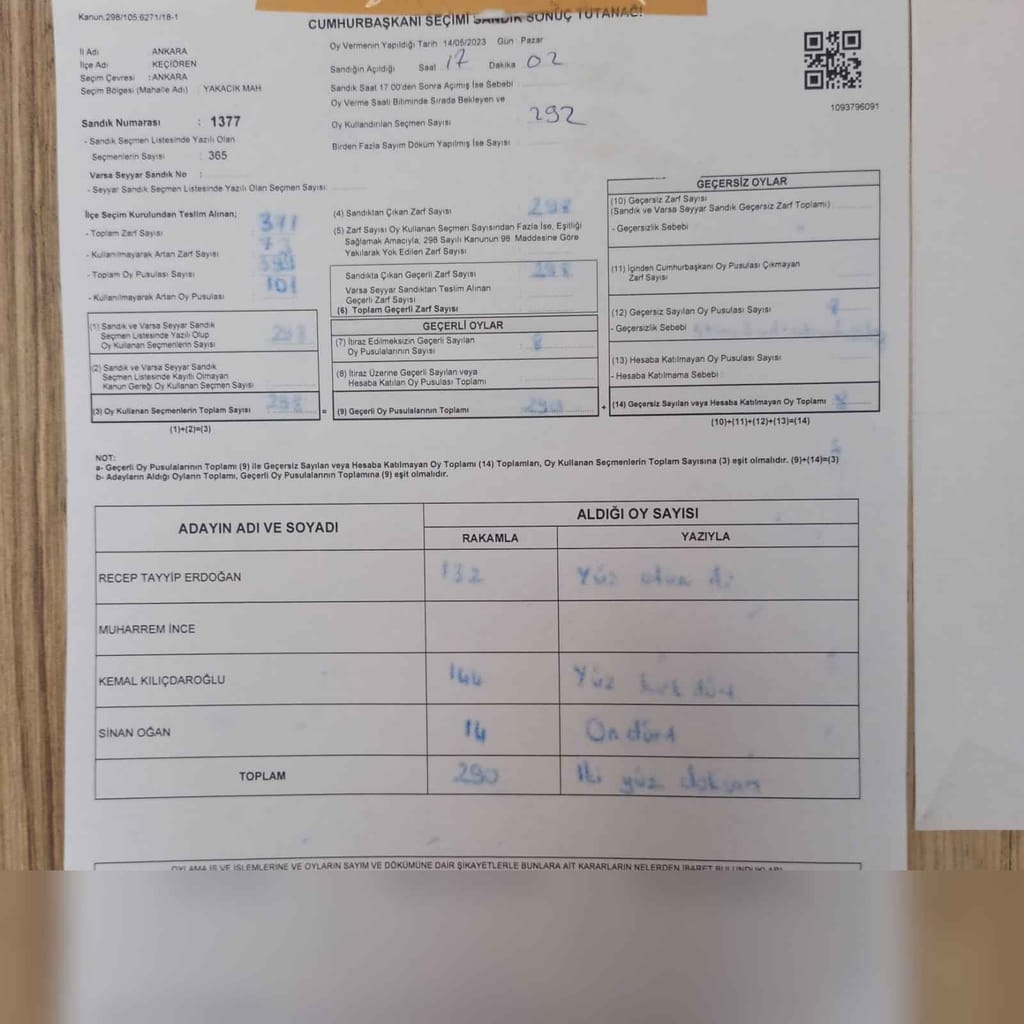 Kanun.298/105.6271/18-1
CUMHURBAŞKANI SEÇİMİ SANDIK SONUÇ TUTANAĞI
İl Adı ANKARA
İlçe Adı KEÇİÖREN
Seçim Çevresi : ANKARA
Seçim Bölgesi (Mahalle Adı) : YAKACIK MAH
Oy Vermenin Yapıldığı Tarih 14/05/2023 Gün : Pazar
Sandığın Açıldığı Saat 17 Dakika 02
Sandık Saat 17 00'den Sonra Açımış İse Sebebi
Oy Verme Saati Bitiminde Sırada Bekleyen ve
Oy Kullandırılan Seçmen Sayısı 292
Birden Fazla Sayım Döküm Yapılmış İse Sayısı
1093796091
Sandık Numarası : 1377
- Sandık Seçmen Listesinde Yazılı Olan
Seçmenlerin Sayısı : 365
Varsa Seyyar Sandık No :
- Seyyar Sandık Seçmen Listesinde Yazılı Olan Seçmen Sayısı:
İlçe Seçim Kurulundan Teslim Alınan;
- Toplam Zarf Sayısı 371
- Kullanılmayarak Artan Zarf Sayısı 73
- Toplam Oy Pusulası Sayısı
- Kullanılmayarak Artan Oy Pusulası 101
(1) Sandık ve Varsa Seyyar Sandık
Seçmen Listesinde Yazılı Olup
Oy Kullanan Seçmenlerin Sayısı
(2) Sandık ve Varsa Seyyar Sandık
Seçmen Listesinde Kayıtlı Olmayan
Kanun Gereği Oy Kullanan Seçmen Sayısı
(3) Oy Kullanan Seçmenlerin Toplam Sayısı 298 =
(1)+(2)=(3)
(4) Sandıktan Çıkan Zarf Sayısı 298
(5) Zarf Sayısı Oy Kullanan Seçmen Sayısından Fazla İse, Eşitliği
Sağlamak Amacıyla, 298 Sayılı Kanunun 98. Maddesine Göre
Yakılarak Yok Edilen Zarf Sayısı
Sandıkta Çıkan Geçerli Zarf Sayısı 298
Varsa Seyyar Sandıktan Teslim Alınan
Geçerli Zarf Sayısı
(6) Toplam Geçerli Zarf Sayısı
GEÇERLİ OYLAR
(7) İtiraz Edilmeksizin Geçerli Sayılan
Oy Pusulalarının Sayısı 8
(8) İtiraz Üzerine Geçerli Sayılan veya
Hesaba Katılan Oy Pusulası Toplamı
(9) Geçerli Oy Pusulalarının Toplamı 290 +
GEÇERSİZ OYLAR
(10) Geçersiz Zarf Sayısı
(Sandık ve Varsa Seyyar Sandık Geçersiz Zarf Toplamı)
- Geçersizlik Sebebi
(11) İçinden Cumhurbaşkanı Oy Pusulası Çıkmayan
Zarf Sayısı
(12) Geçersiz Sayılan Oy Pusulası Sayısı 8
- Geçersizlik Sebebi
(13) Hesaba Katılmayan Oy Pusulası Sayısı
- Hesaba Katılmama Sebebi
(14) Geçersiz Sayılan veya Hesaba Katılmayan Oy Toplamı 8
(10)+(11)+(12)+(13)=(14)
NOT:
a- Geçerli Oy Pusulalarının Toplamı (9) ile Geçersiz Sayılan veya Hesaba Katılmayan Oy Toplamı (14) Toplamları, Oy Kullanan Seçmenlerin Toplam Sayısına (3) eşit olmalıdır. (9)+(14)=(3)
b- Adayların Aldığı Oyların Toplamı, Geçerli Oy Pusulalarının Toplamına (9) eşit olmalıdır.
ADAYIN ADI VE SOYADI ALDIĞI OY SAYISI
RAKAMLA YAZIYLA
RECEP TAYYİP ERDOĞAN 132 Yüz otuz iki
MUHARREM İNCE
KEMAL KILIÇDAROĞLU 144 Yüz kırk dört
SİNAN OĞAN 14 On dört
TOPLAM 290 İki yüz doksan
OYLAMA İŞ VE İŞLEMLERİNE VE OYLARIN SAYIM VE DÖKÜMÜNE DAİR ŞİKAYETLERLE BUNLARA AİT KARARLARIN NELERDEN İBARET BULUNDUKLARI